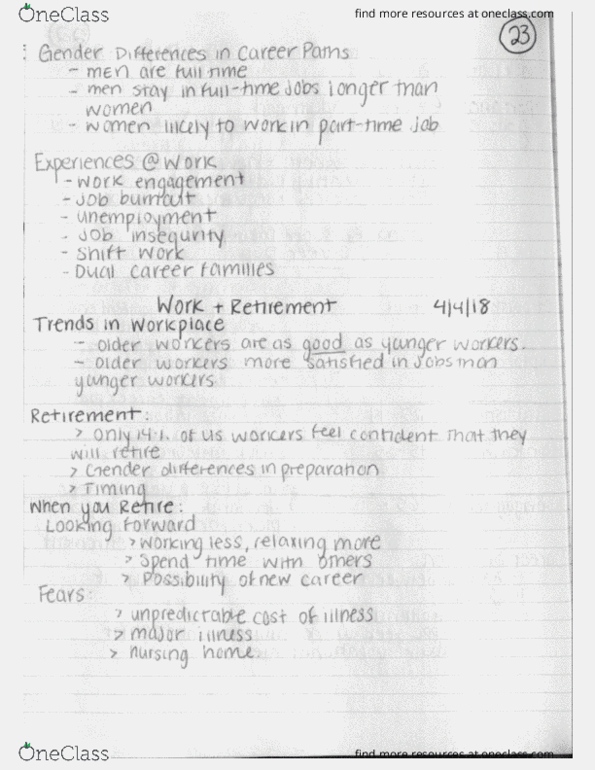 OneClass
find more resources at oneclass.com
23
: Gender Differences in Career Paths
- men are full time
- men stay in full-time jobs longer than
women
- women likely to work in part-time job
Experiences @ Work
- work engagement
- Job burnout
- unemployment
- Job insequrity
- Shift work
- Dual career families
Work + Retirement 4/4/18
Trends in Workplace
- older workers are as good as yunger workers.
- older workers more satisfied in Jobs than
yunger workers.
Retirement:
> only 14% of US workers feel confident that they
will retire
> Gender differences in preparation
> Timing
When you Retire:
Looking forward
> Working less, relaxing more
> Spend time with others
> Possibility of new career
Fears:
> unpredictable cost of illness
> major illness
> nursing home.
OneClass
find more resources at oneclass.com